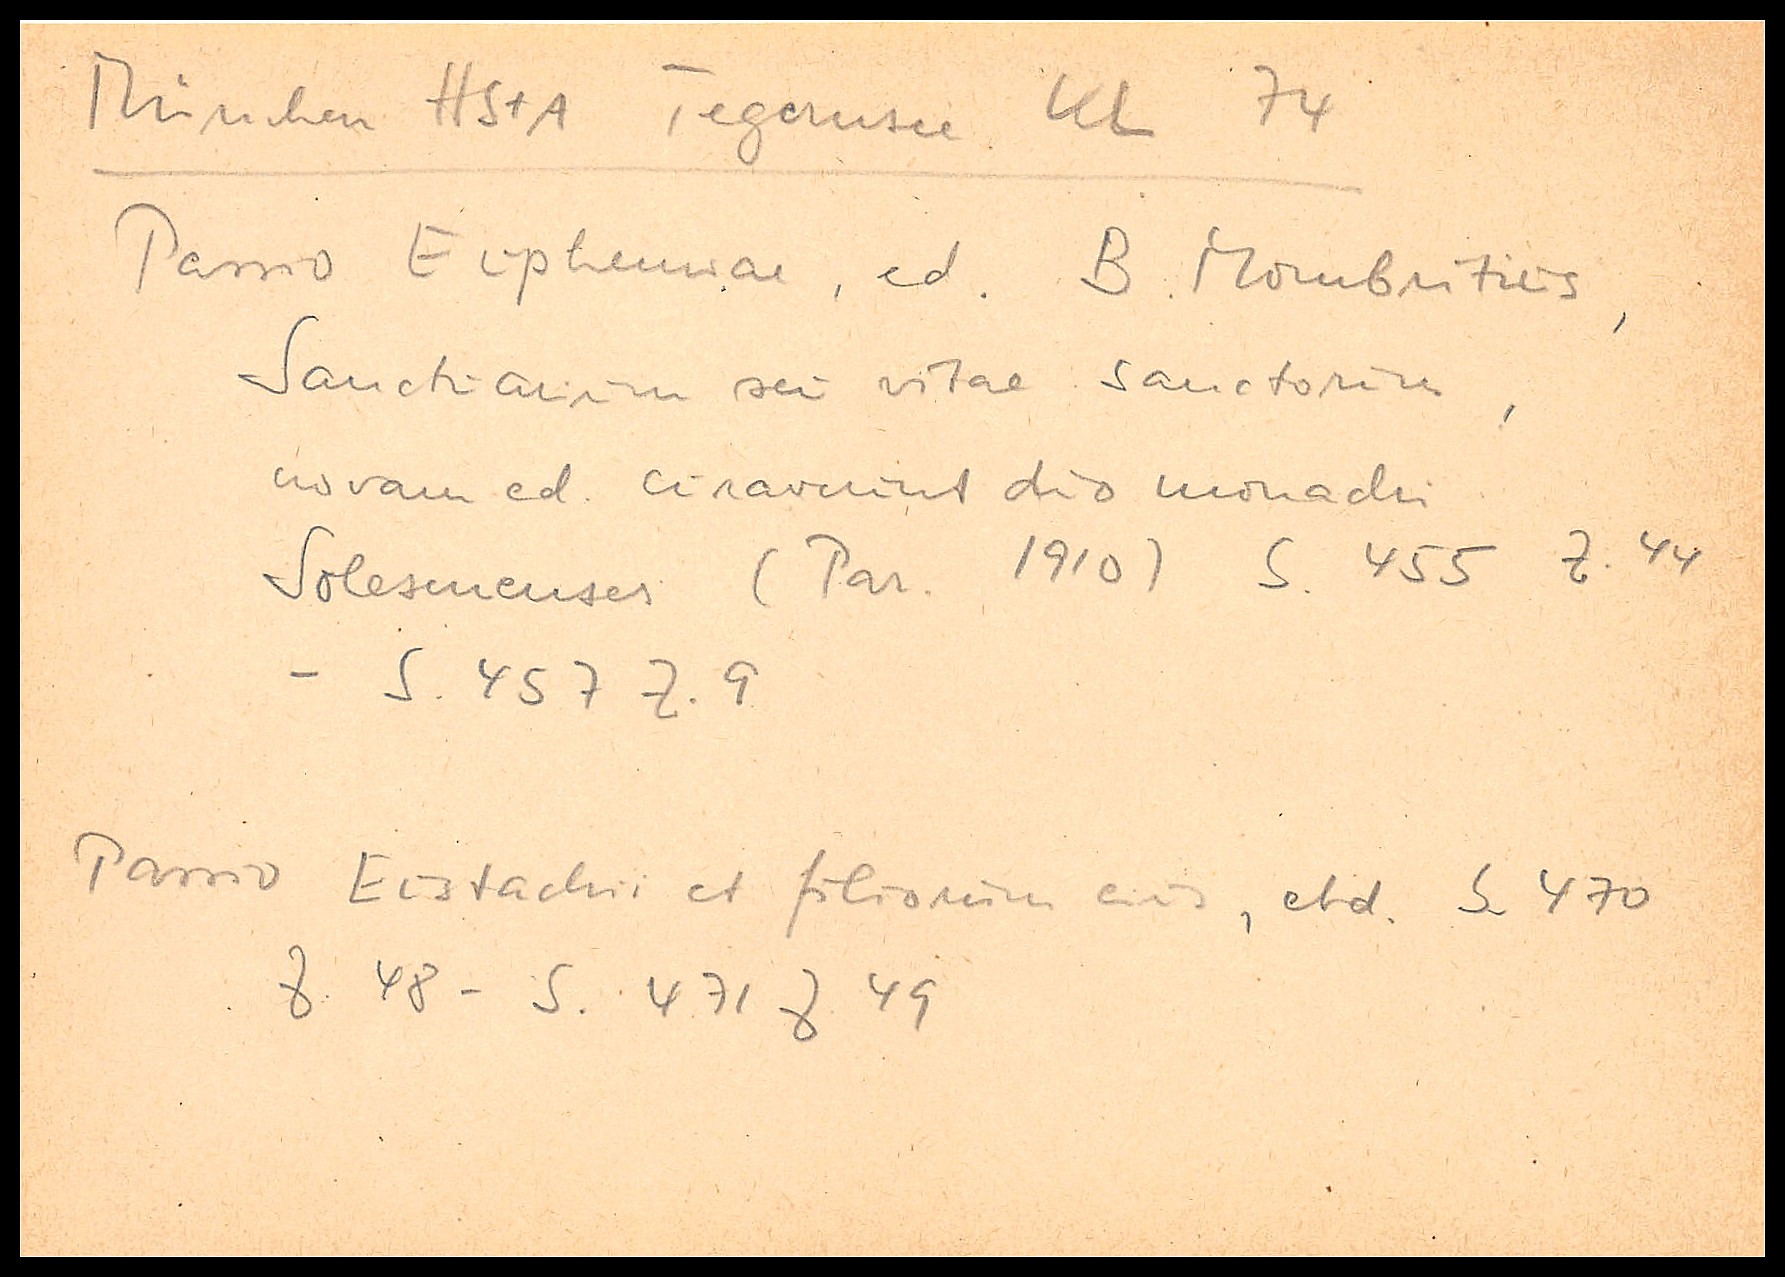 München HStA Tegernsee KL 74
Passio Euphemiae, ed. B. Mombritius,
Sanctuarium seu vitae sanctorum,
novam ed. curaverunt duo monachi
Solesmenses (Par. 1910) S. 455 Z. 44
- S. 457 Z. 9
Passio Eustachii et filiorum eius, ebd. S. 470
Z. 48 - S. 471 Z. 49